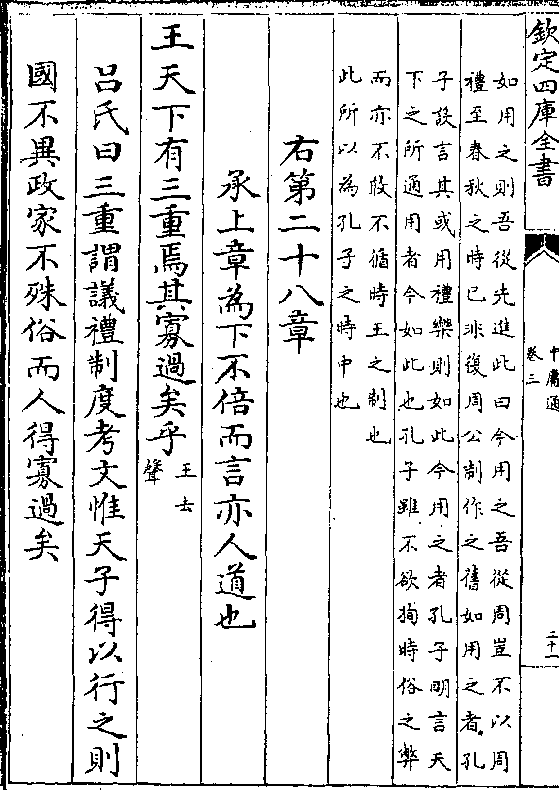 欽定四庫全書
中庸通
卷三
二十一
如用之則吾從先進此曰今用之吾從周豈不以周
禮至春秋之時已非復周公制作之舊如用之者孔
子設言其或用禮樂則如此今用之者孔子明言天
下之所通用者今如此也孔子雖不欲拘時俗之弊
而亦不敢不循時王之制也
此所以為孔子之時中也
右第二十八章
承上章為下不倍而言亦人道也
王天下有三重焉其寡過矣乎
王去
聲
呂氏曰三重謂議禮制度考文惟天子得以行之則
國不異政家不殊俗而人得寡過矣